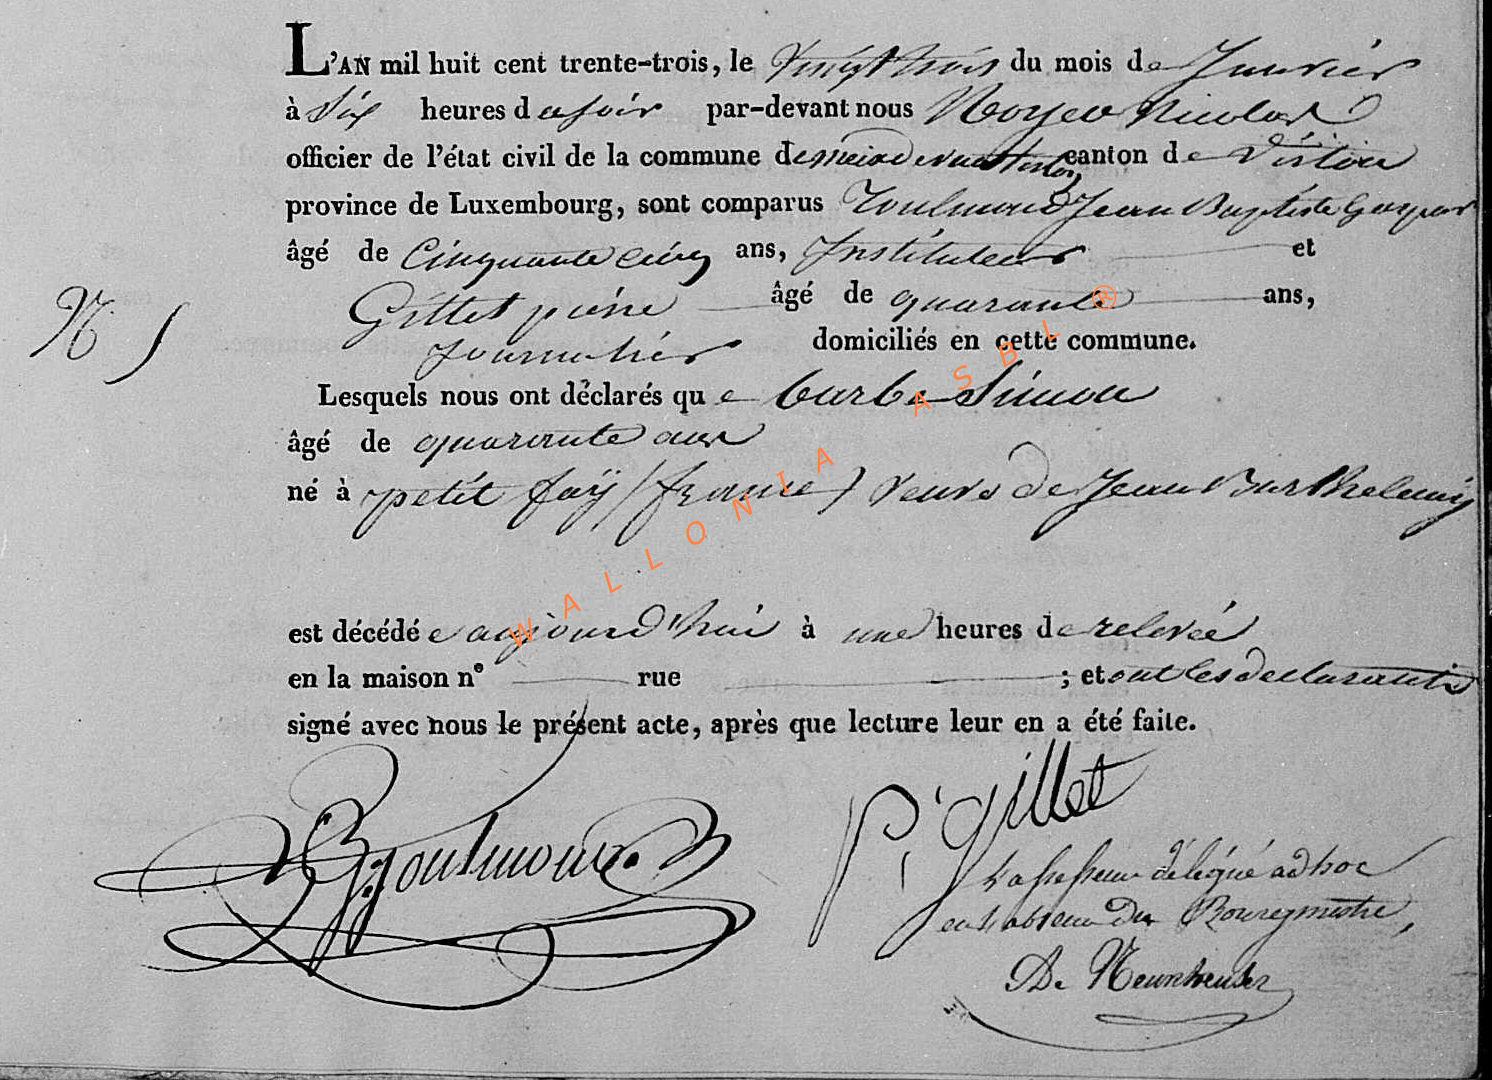 L'AN mil huit cent trente-trois, le vingt trois du mois de Janvier
à Six heures du soir par-devant nous Noyer Nicolas
officier de l'état civil de la commune de canton de Virton
province de Luxembourg, sont comparus Toulmond Jean Baptiste Gaspar
âgé de Cinquante cinq ans, Instituteur et
Gillet piére âgé de quarante ans,
Journalier domiciliés en cette commune.
N 5
Lesquels nous ont déclarés que barbe Simon
âgé de quarante ans
né à petit faÿ (france) veuve de Jean Barthelemy
est décédé e aujourd'hui à une heures de relevée
en la maison n° rue ; et ont les declarants
signé avec nous le présent acte, après que lecture leur en a été faite.
Toulmond
P. Gillet
L'assesseur délégué ad hoc
en l'absence du Bourgmestre,
De
WALLONIA ASBL ®